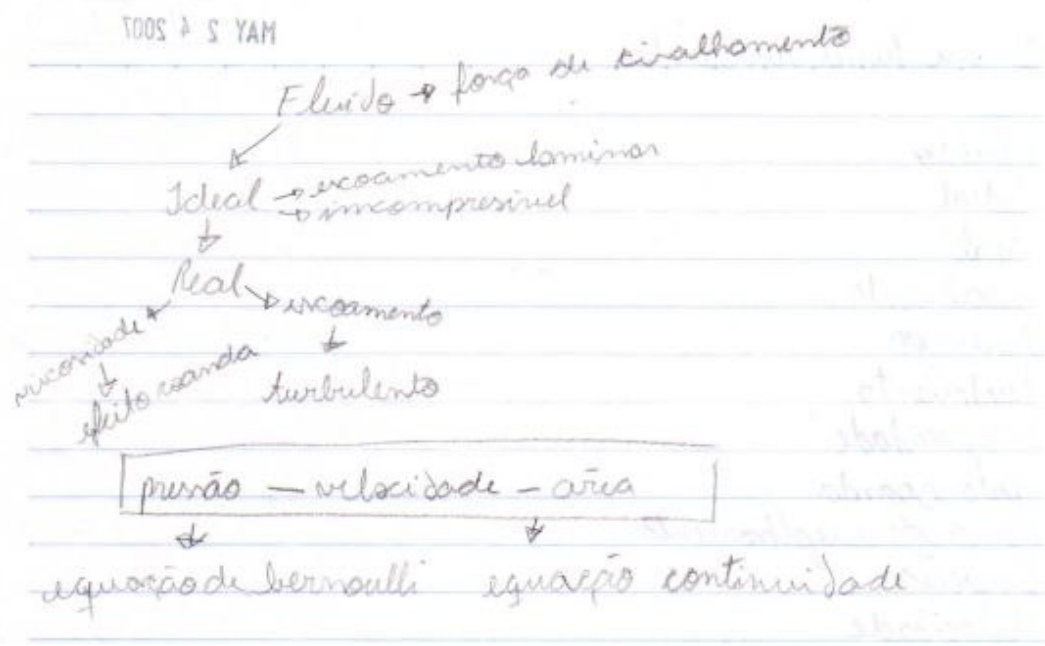 MAY 2 4 2007
Fluido → força de cisalhamento
Ideal → escoamento laminar
→ imcompresivel
Real → escoamento
viscosidade
efeito coanda
turbulento
pressão — velocidade - área
equação de bernoulli equação continuidade